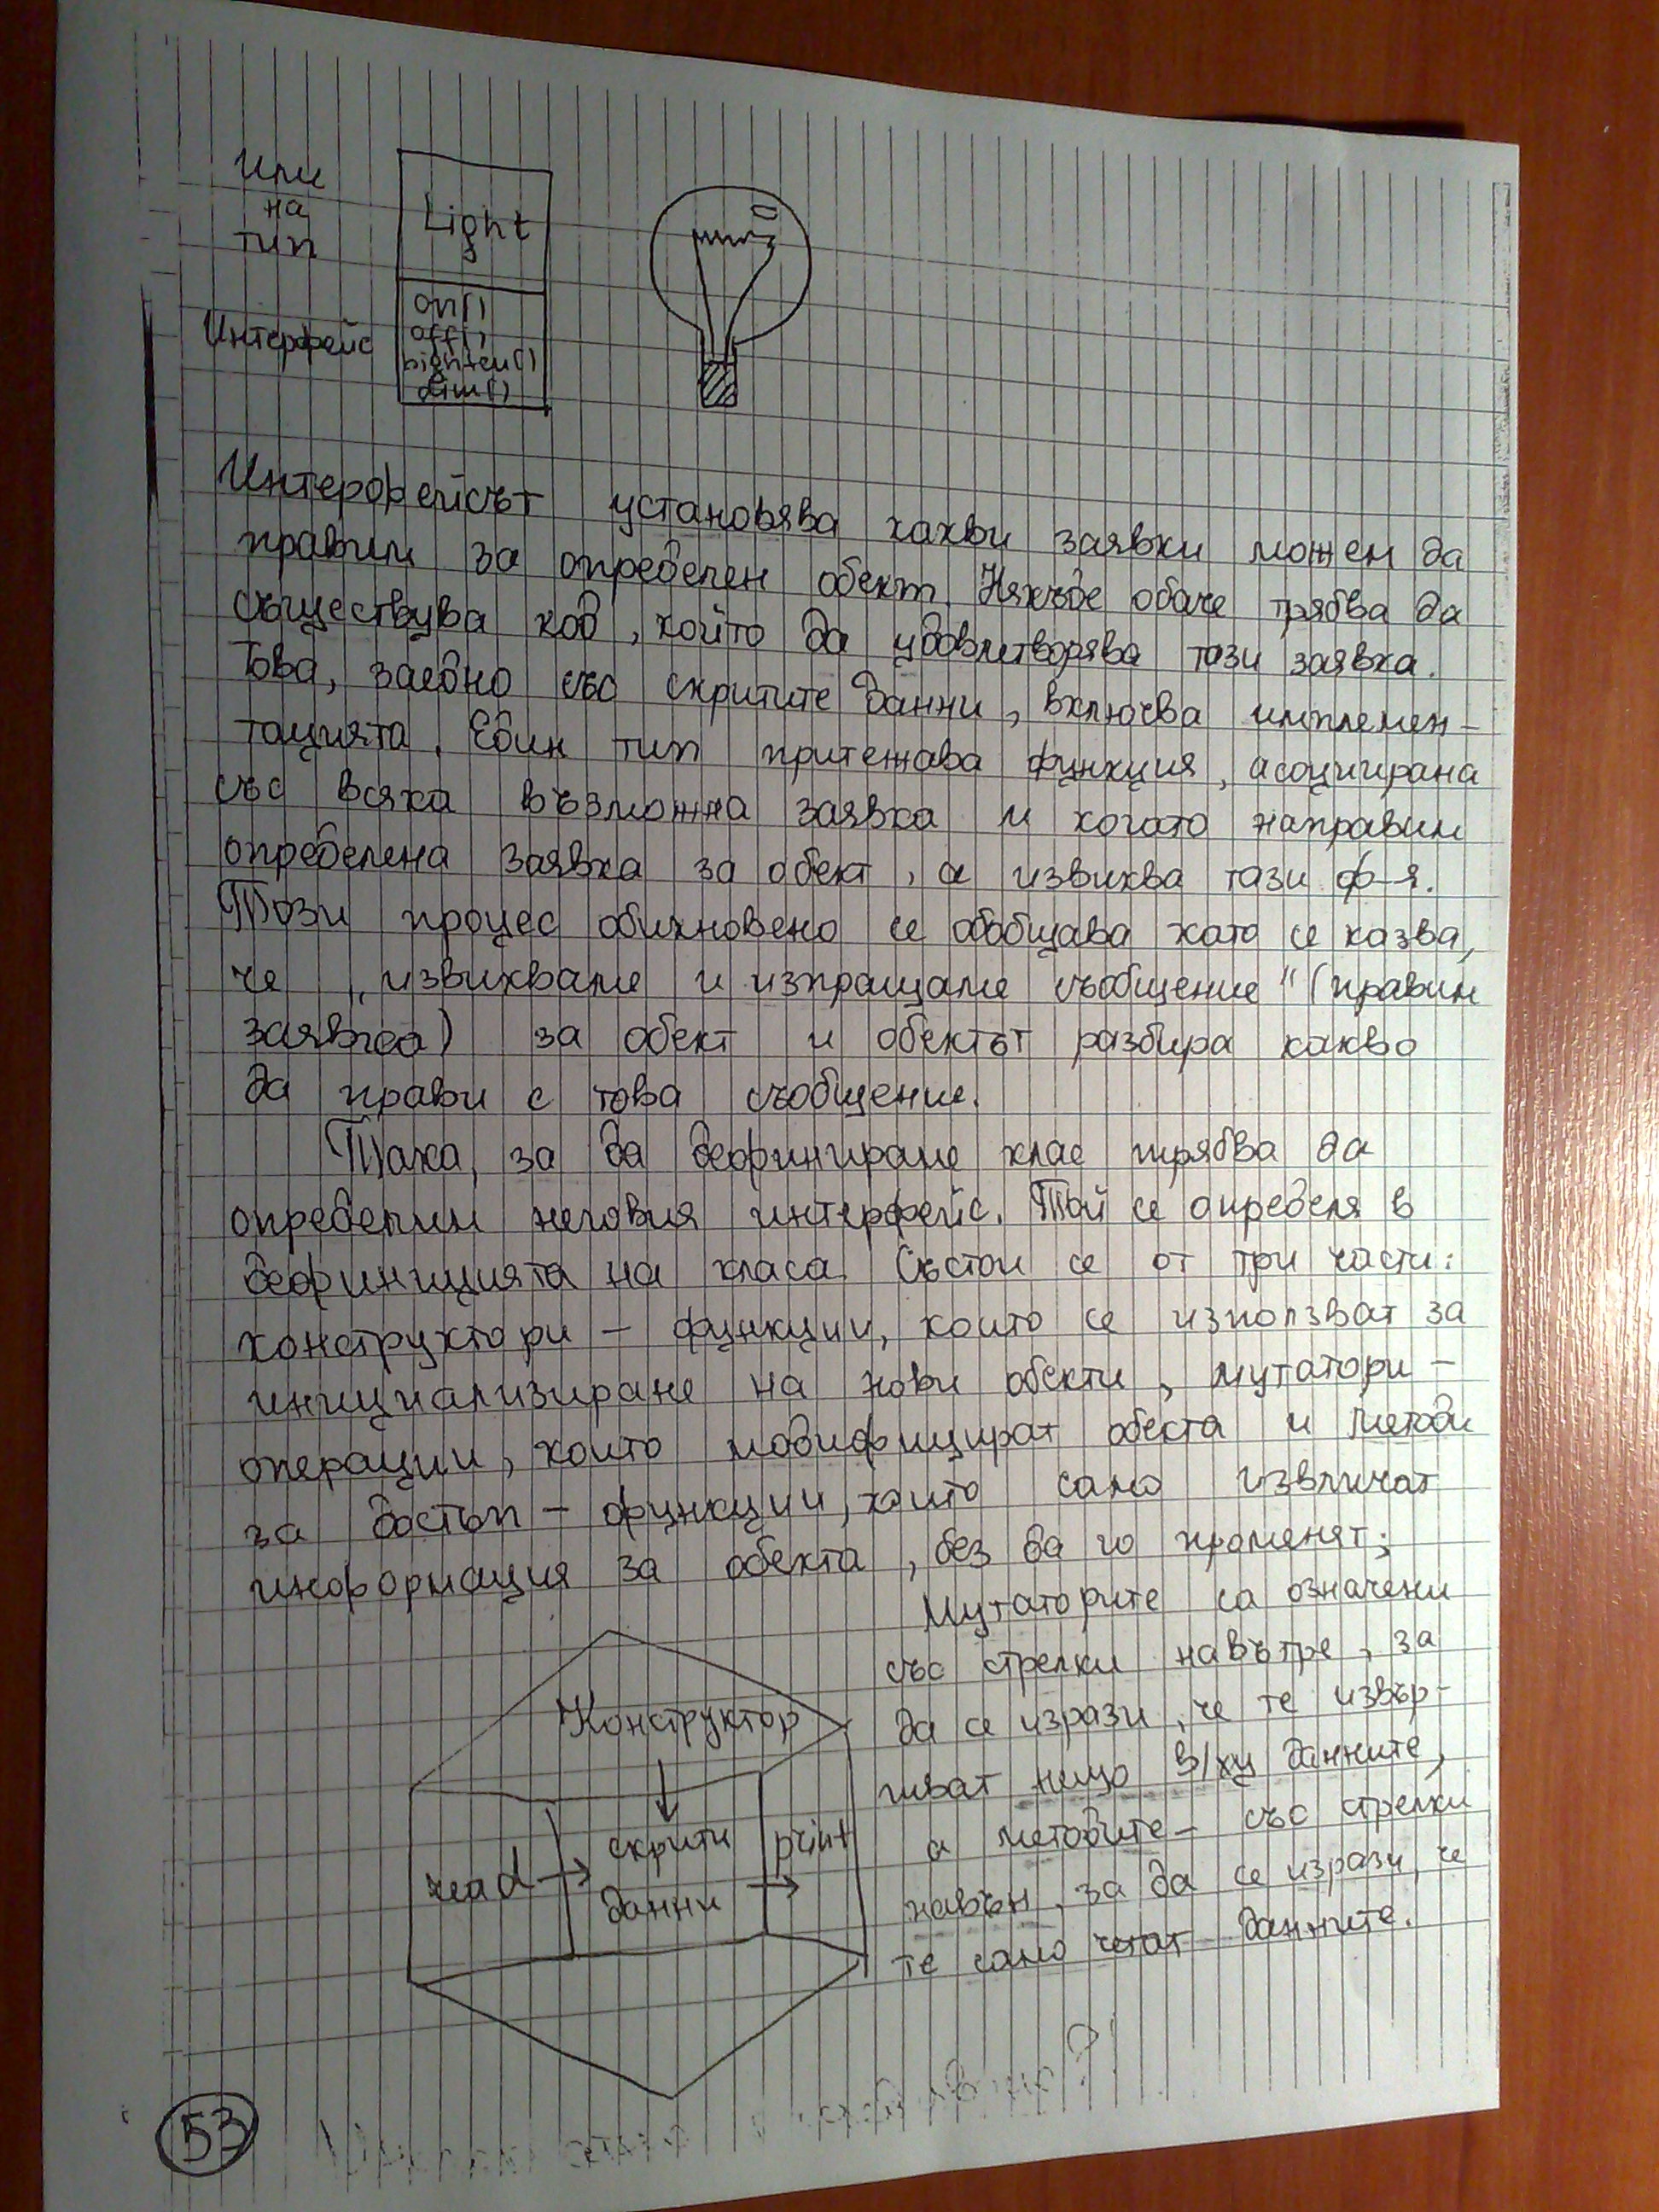 Или
на
тип
Light
Интерфейс
on()
off()
bighten()
dim()
Интерфейсът установява какви заявки можем да
правим за определен обект. Някъде обаче трябва да
съществува код, който да удовлетворява тази заявка.
Това, заедно със скритите данни, включва имплемен-
тацията. Един тип притежава функция, асоциирана
със всяка възможна заявка и когато направим
определена заявка за обект, се извиква тази ф-я.
Този процес обикновено се обобщава като се казва,
че „извикваме и изпращаме съобщение" (правим
заявка) за обект и обектът разбира какво
да прави с това съобщение.
Така, за да дефинираме клас трябва да
определим неговия интерфейс. Той се определя в
дефиницията на класа. Състои се от три части:
конструктори – функции, които се използват за
инициализиране на нови обекти, мутатори –
операции, които модифицират обекта и методи
за достъп – функции, които само извличат
информация за обекта, без да го променят;
Мутаторите са означени
със стрелки навътре, за
да се изрази, че те извър-
шват нещо в/ху данните,
а методите – със стрелки
навън, за да се изрази, че
те само четат данните.
Конструктор
read
скрити
данни
print
53